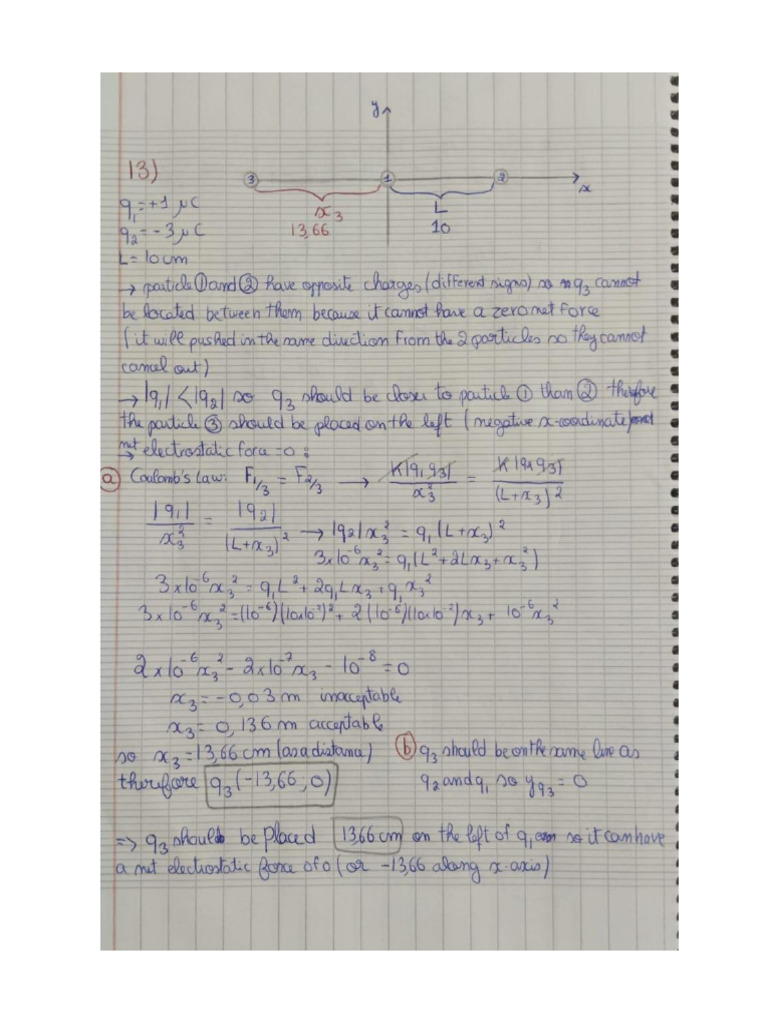 y
13)
3 1 2 x
q₁=+1 μC
x₃ L
q₂=-3 μC 13,66 10
L=10cm
→ particle ① and ② have opposite charges (different signs) so q₃ cannot
be located between them because it cannot have a zero net force
(it will pushed in the same direction from the 2 particles so they cannot
cancel out)
→ |q₁| < |q₂| so q₃ should be closer to particle ① than ② therefore
the particle ③ should be placed on the left (negative x-coordinate)
net
→ electrostatic force = 0 :
ⓐ Coulomb's Law: F₁/₃ = F₂/₃ → K|q₁q₃|/x₃² = K|q₂q₃|/(L+x₃)²
|q₁|/x₃² = |q₂|/(L+x₃)² → |q₂|x₃² = q₁(L+x₃)²
3×10⁻⁶x₃² = q₁(L²+2Lx₃+x₃²)
3×10⁻⁶x₃² = q₁L²+2q₁Lx₃+q₁x₃²
3×10⁻⁶x₃² = (10⁻⁶)(10x10⁻²)²+ 2(10⁻⁶)(10x10⁻²)x₃+ 10⁻⁶x₃²
2×10⁻⁶x₃² - 2×10⁻⁷x₃ - 10⁻⁸ = 0
x₃ = -0,03 m inacceptable
x₃ = 0,136 m acceptable
so x₃ = 13,66 cm (as a distance)
therefore q₃(-13,66,0)
ⓑ q₃ should be on the same line as
q₂ and q₁ so yq₃ = 0
⇒ q₃ should be placed 13,66 cm on the left of q₁ so it can have
a net electrostatic force of 0 (or -13,66 along x-axis)